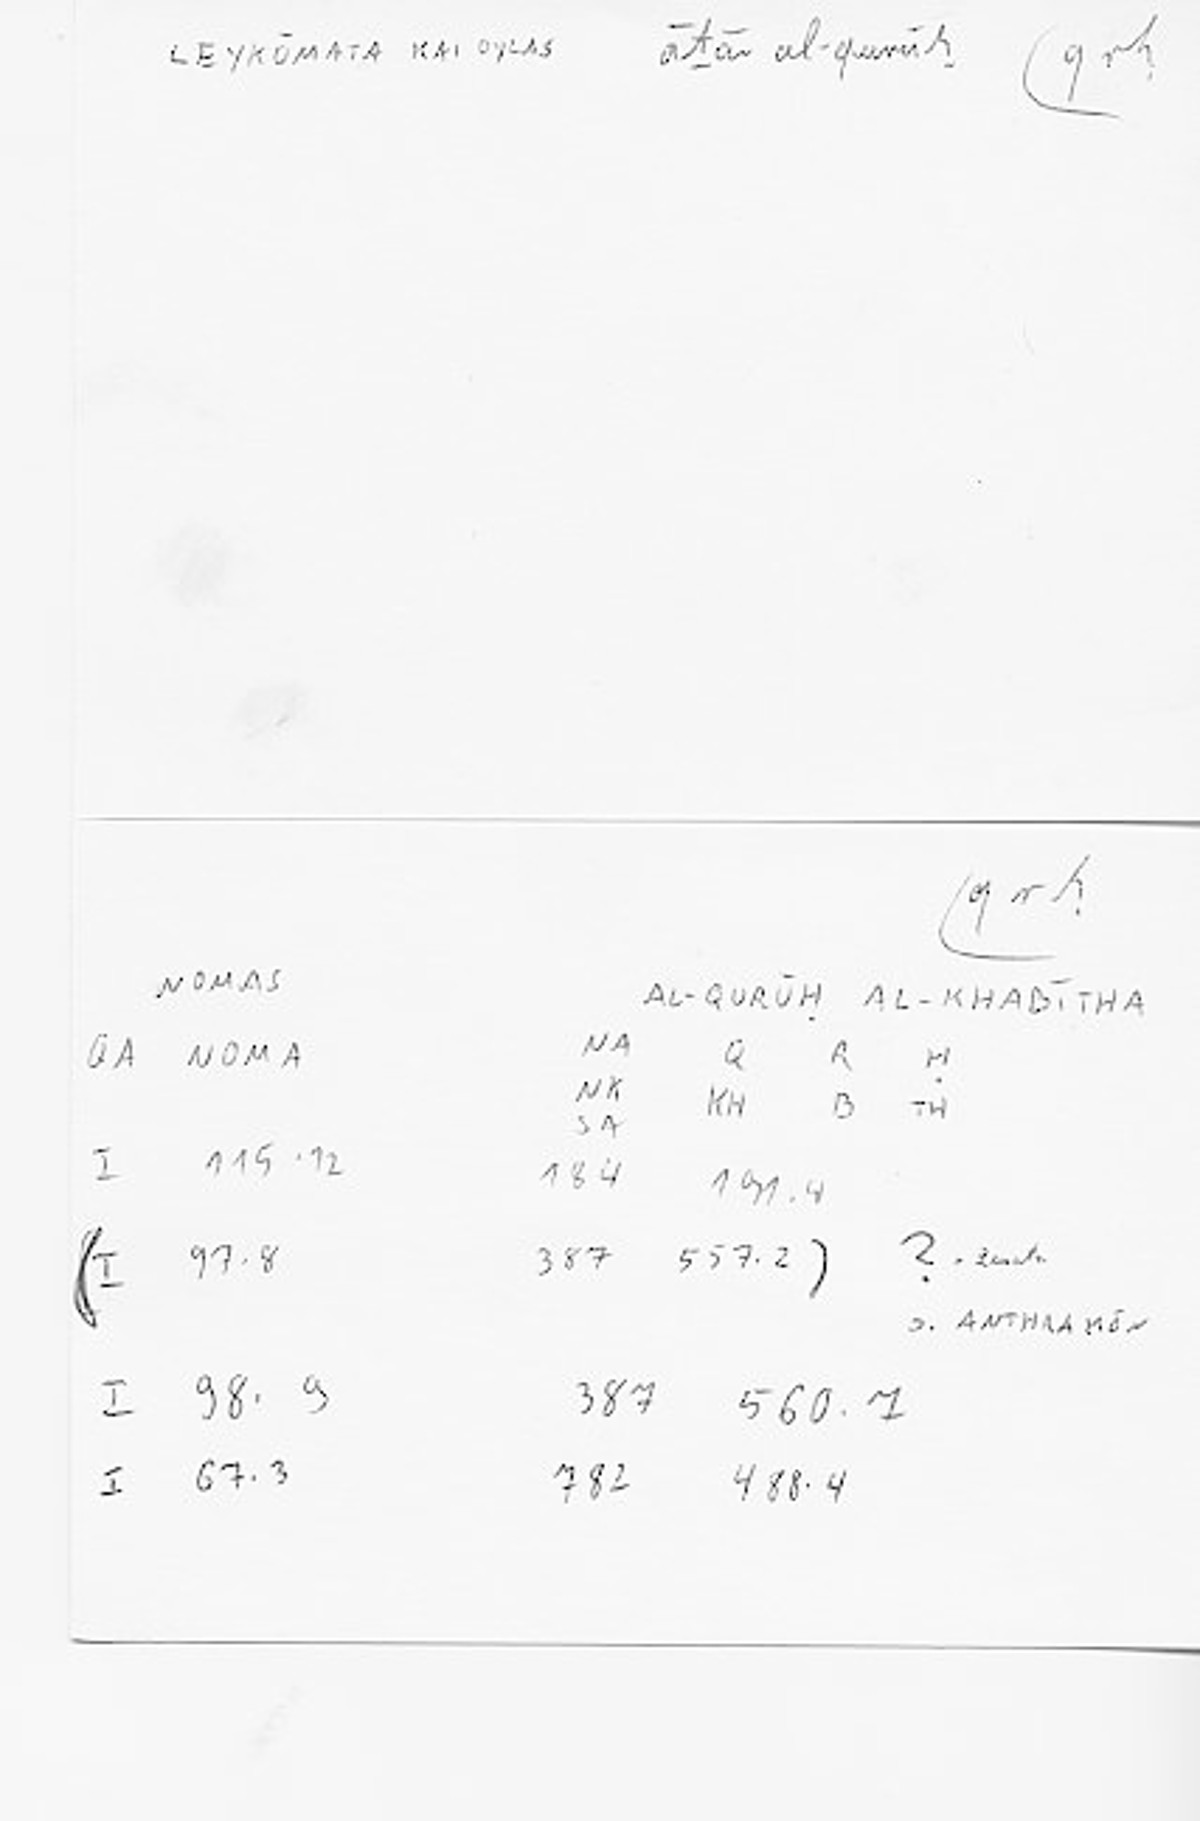 LEYKŌMATA KAI OYLAS āṯār al-qurūḥ (qrḥ
(qrḥ
NOMAS AL-QURŪḤ AL-KHABĪTHA
QA NOMA NA Q R Ḥ
NK KH B TH
SA
I 115.12 184 191.4
(I 97.8 387 557.2) ?
s. ANTHRAKŌN
I 98.9 387 560.1
I 67.3 782 488.4